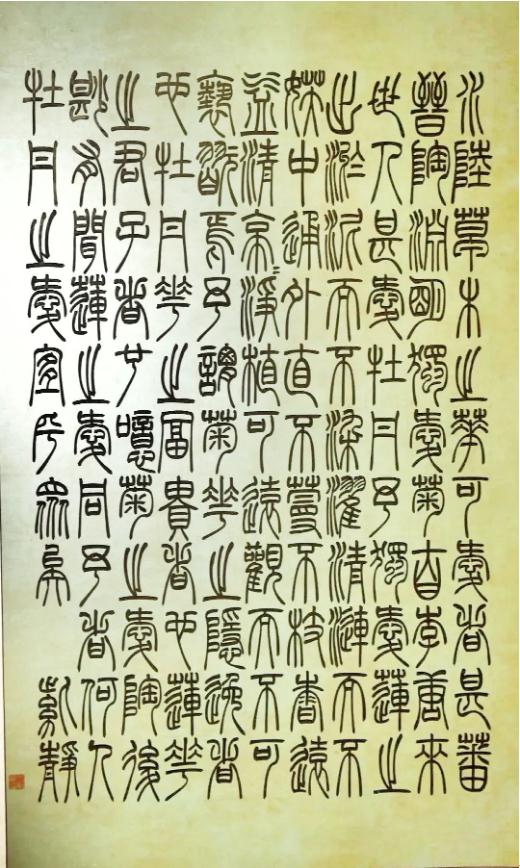 水陸草木之華可愛者甚蕃
晉陶淵明獨愛菊自李唐來
世人甚愛牡丹予獨愛蓮之
出淤泥而不染濯清漣而不
妖中通外直不蔓不枝香遠
益清亭〻淨植可遠觀而不可
褻翫焉予謂菊花之隱逸者
也牡丹花之富貴者也蓮花
之君子者也噫菊之愛陶後
尟有聞蓮之愛同予者何人
牡丹之愛宜乎眾矣 紫靜